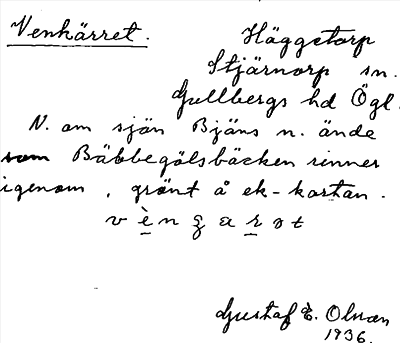 Venkärret.
Häggetorp
Stjärnorp sn.
Gullbergs hd Ögl.
N. om sjön Bjäns n. ände
som Bäbbegölsbäcken rinner
igenom, grönt å ek-kartan.
Gustaf E. Olson
1936.